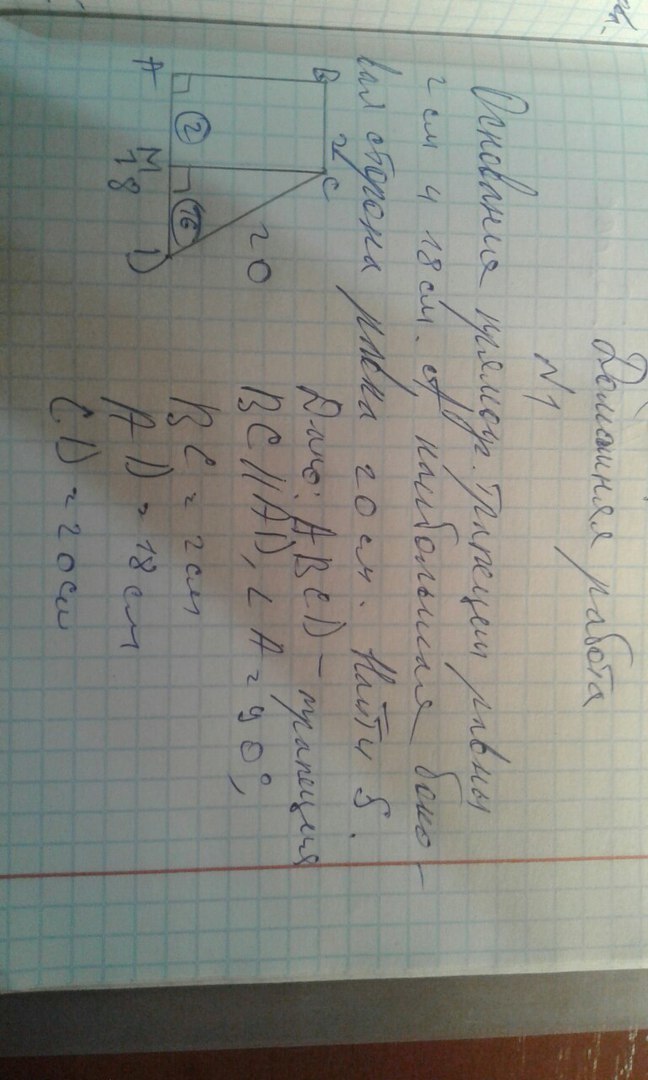 Домашняя работа
N1
Основания прямоуг. трапеции равны
2 см и 18 см. а наибольшая боко-
вая сторона равна 20 см. Найти S.
B 2 C
20
A 2 M 16 D
18
Дано: ABCD - трапеция
BC || AD, ∠A = 90°,
BC = 2 см
AD = 18 см
CD = 20 см